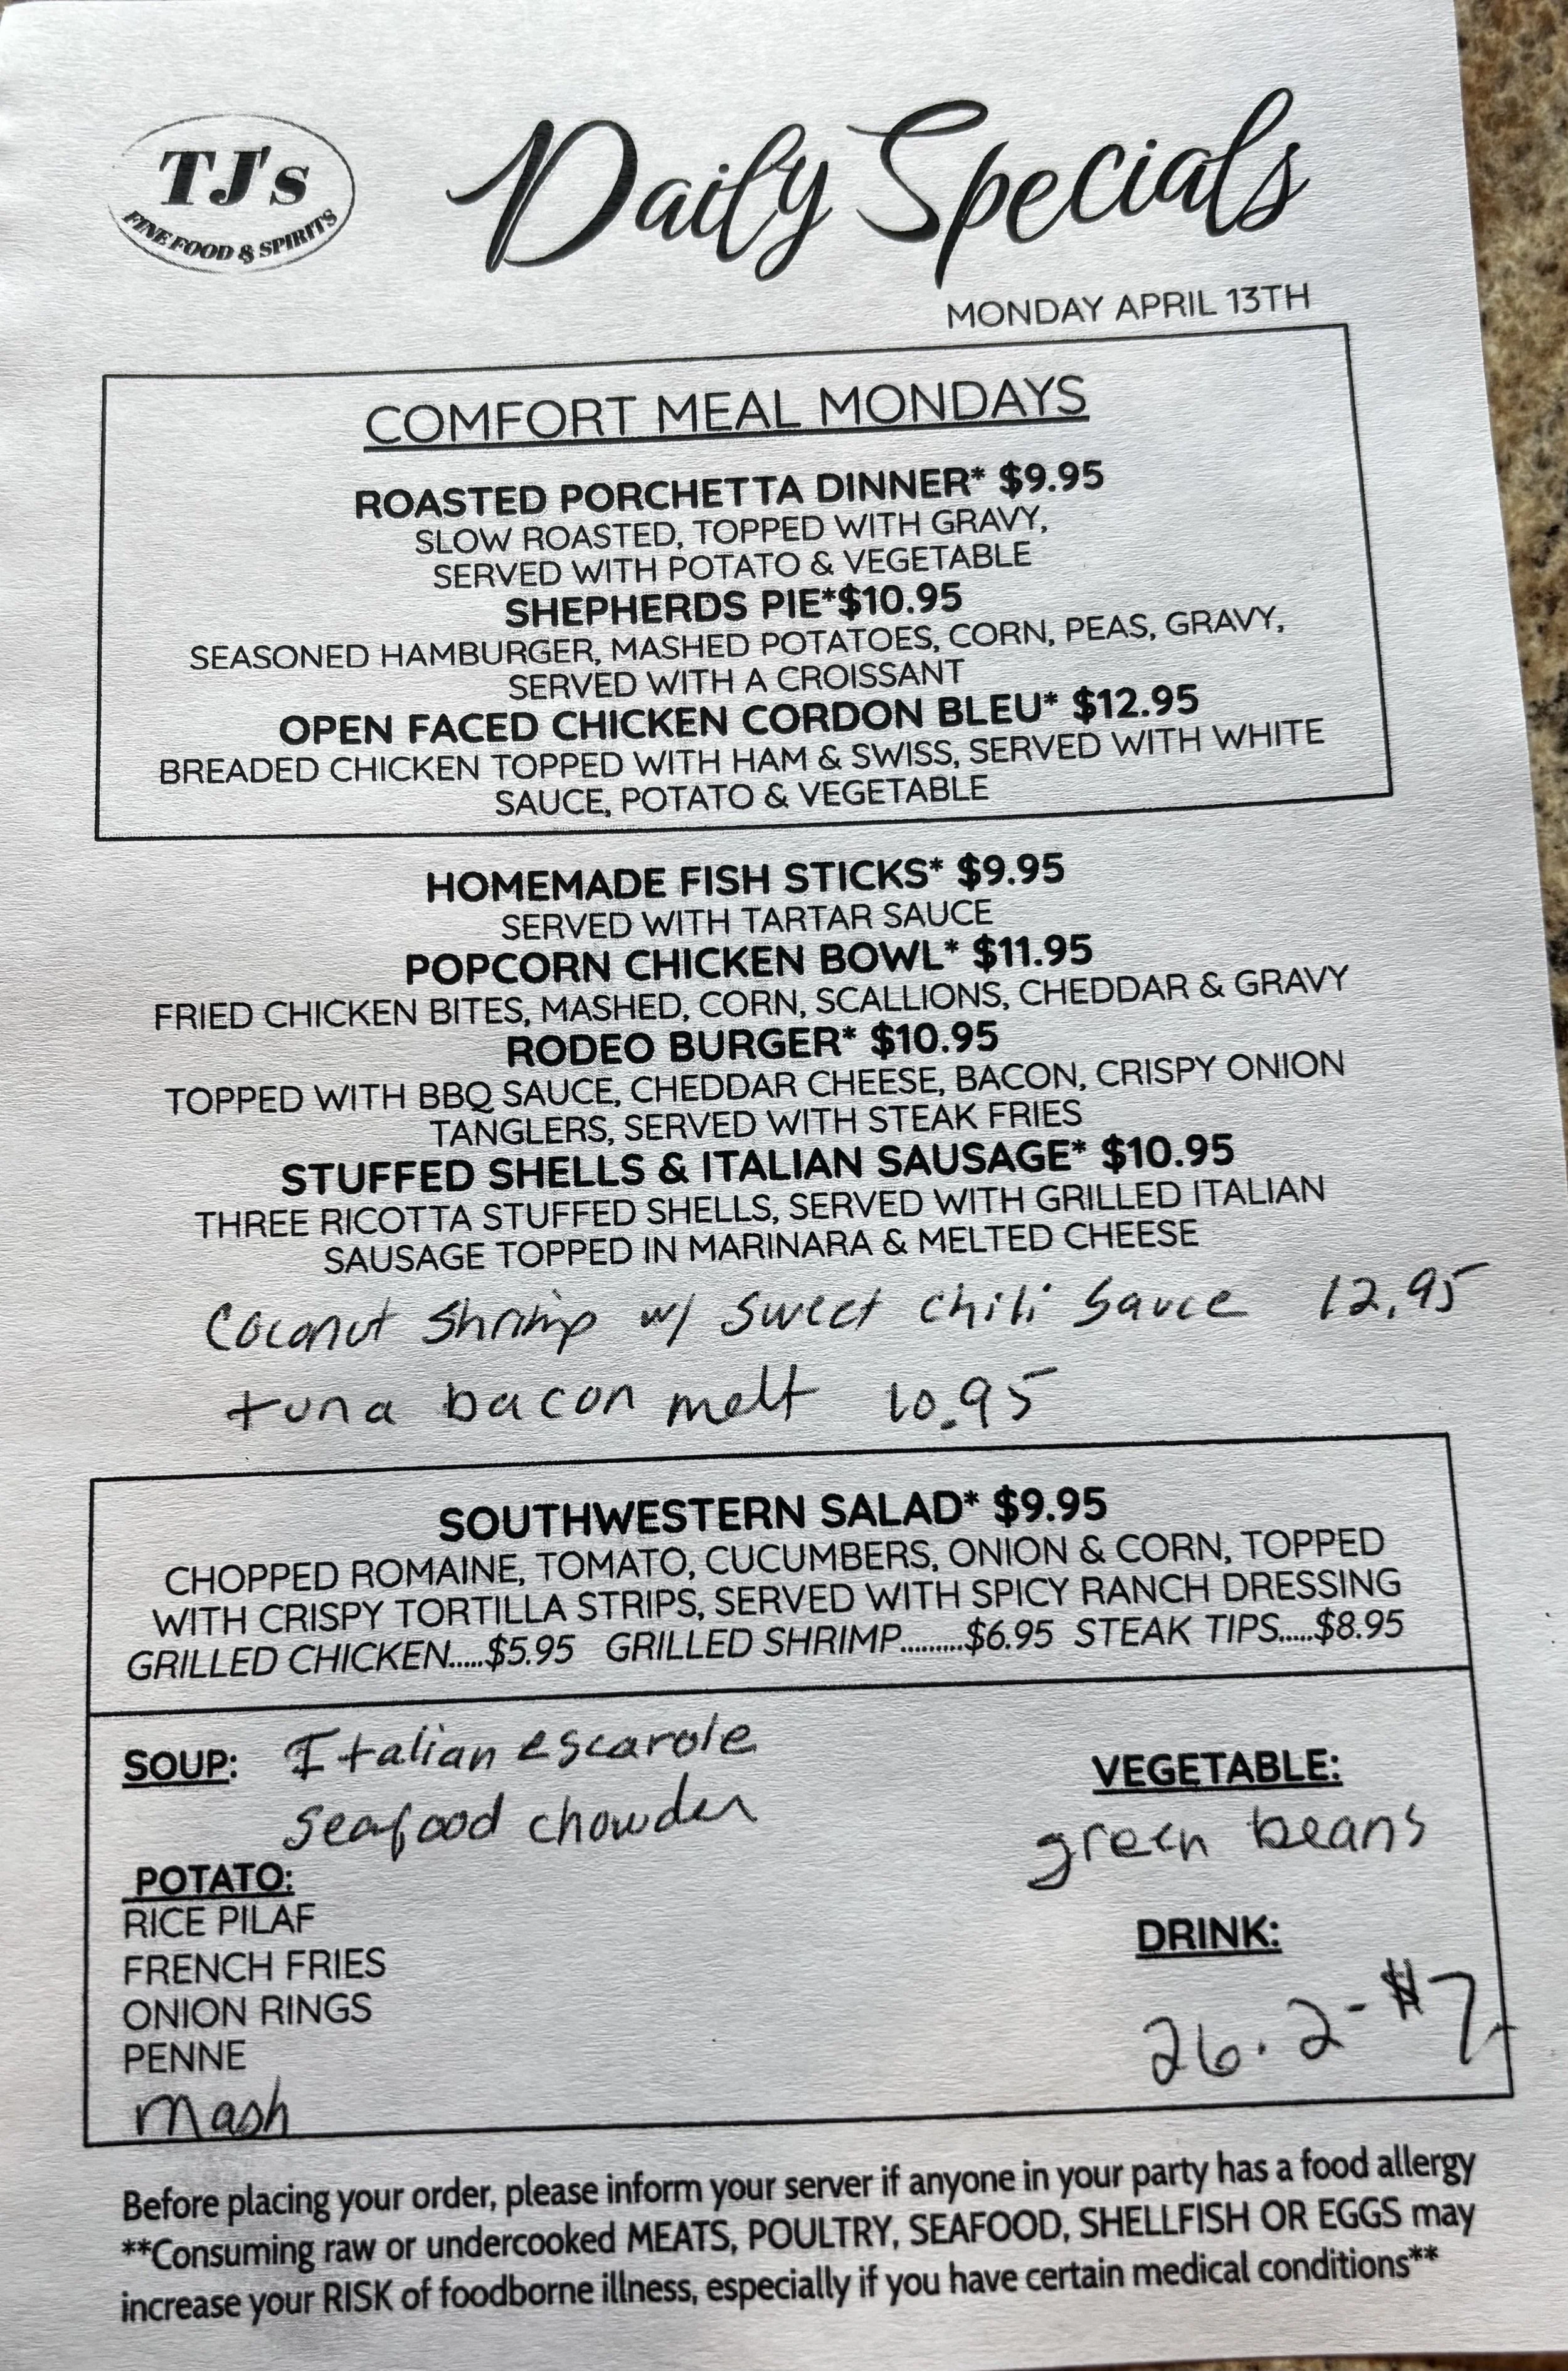 TJ's
FINE FOOD & SPIRITS
Daily Specials
MONDAY APRIL 13TH
COMFORT MEAL MONDAYS
ROASTED PORCHETTA DINNER* $9.95
SLOW ROASTED, TOPPED WITH GRAVY,
SERVED WITH POTATO & VEGETABLE
SHEPHERDS PIE*$10.95
SEASONED HAMBURGER, MASHED POTATOES, CORN, PEAS, GRAVY,
SERVED WITH A CROISSANT
OPEN FACED CHICKEN CORDON BLEU* $12.95
BREADED CHICKEN TOPPED WITH HAM & SWISS, SERVED WITH WHITE
SAUCE, POTATO & VEGETABLE
HOMEMADE FISH STICKS* $9.95
SERVED WITH TARTAR SAUCE
POPCORN CHICKEN BOWL* $11.95
FRIED CHICKEN BITES, MASHED, CORN, SCALLIONS, CHEDDAR & GRAVY
RODEO BURGER* $10.95
TOPPED WITH BBQ SAUCE, CHEDDAR CHEESE, BACON, CRISPY ONION
TANGLERS, SERVED WITH STEAK FRIES
STUFFED SHELLS & ITALIAN SAUSAGE* $10.95
THREE RICOTTA STUFFED SHELLS, SERVED WITH GRILLED ITALIAN
SAUSAGE TOPPED IN MARINARA & MELTED CHEESE
Coconut Shrimp w/ Sweet Chili Sauce 12.95
tuna bacon melt 10.95
SOUTHWESTERN SALAD* $9.95
CHOPPED ROMAINE, TOMATO, CUCUMBERS, ONION & CORN, TOPPED
WITH CRISPY TORTILLA STRIPS, SERVED WITH SPICY RANCH DRESSING
GRILLED CHICKEN.....$5.95 GRILLED SHRIMP.........$6.95 STEAK TIPS.....$8.95
SOUP: Italian escarole
Seafood chowder
POTATO:
RICE PILAF
FRENCH FRIES
ONION RINGS
PENNE
Mash
VEGETABLE:
green beans
DRINK:
26.2 - $7
Before placing your order, please inform your server if anyone in your party has a food allergy
**Consuming raw or undercooked MEATS, POULTRY, SEAFOOD, SHELLFISH OR EGGS may
increase your RISK of foodborne illness, especially if you have certain medical conditions**